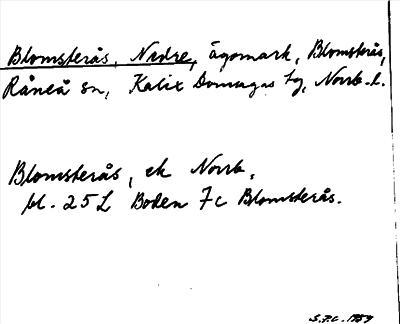 Blomsterås, Nedre, ägomark, Blomsterås,
Råneå sn, Kalix Domsagas tg, Norrb. l.
Blomsterås, ek Norrb.
bl. 25 L Boden 7c Blomsterås.
S.F.L. 1959